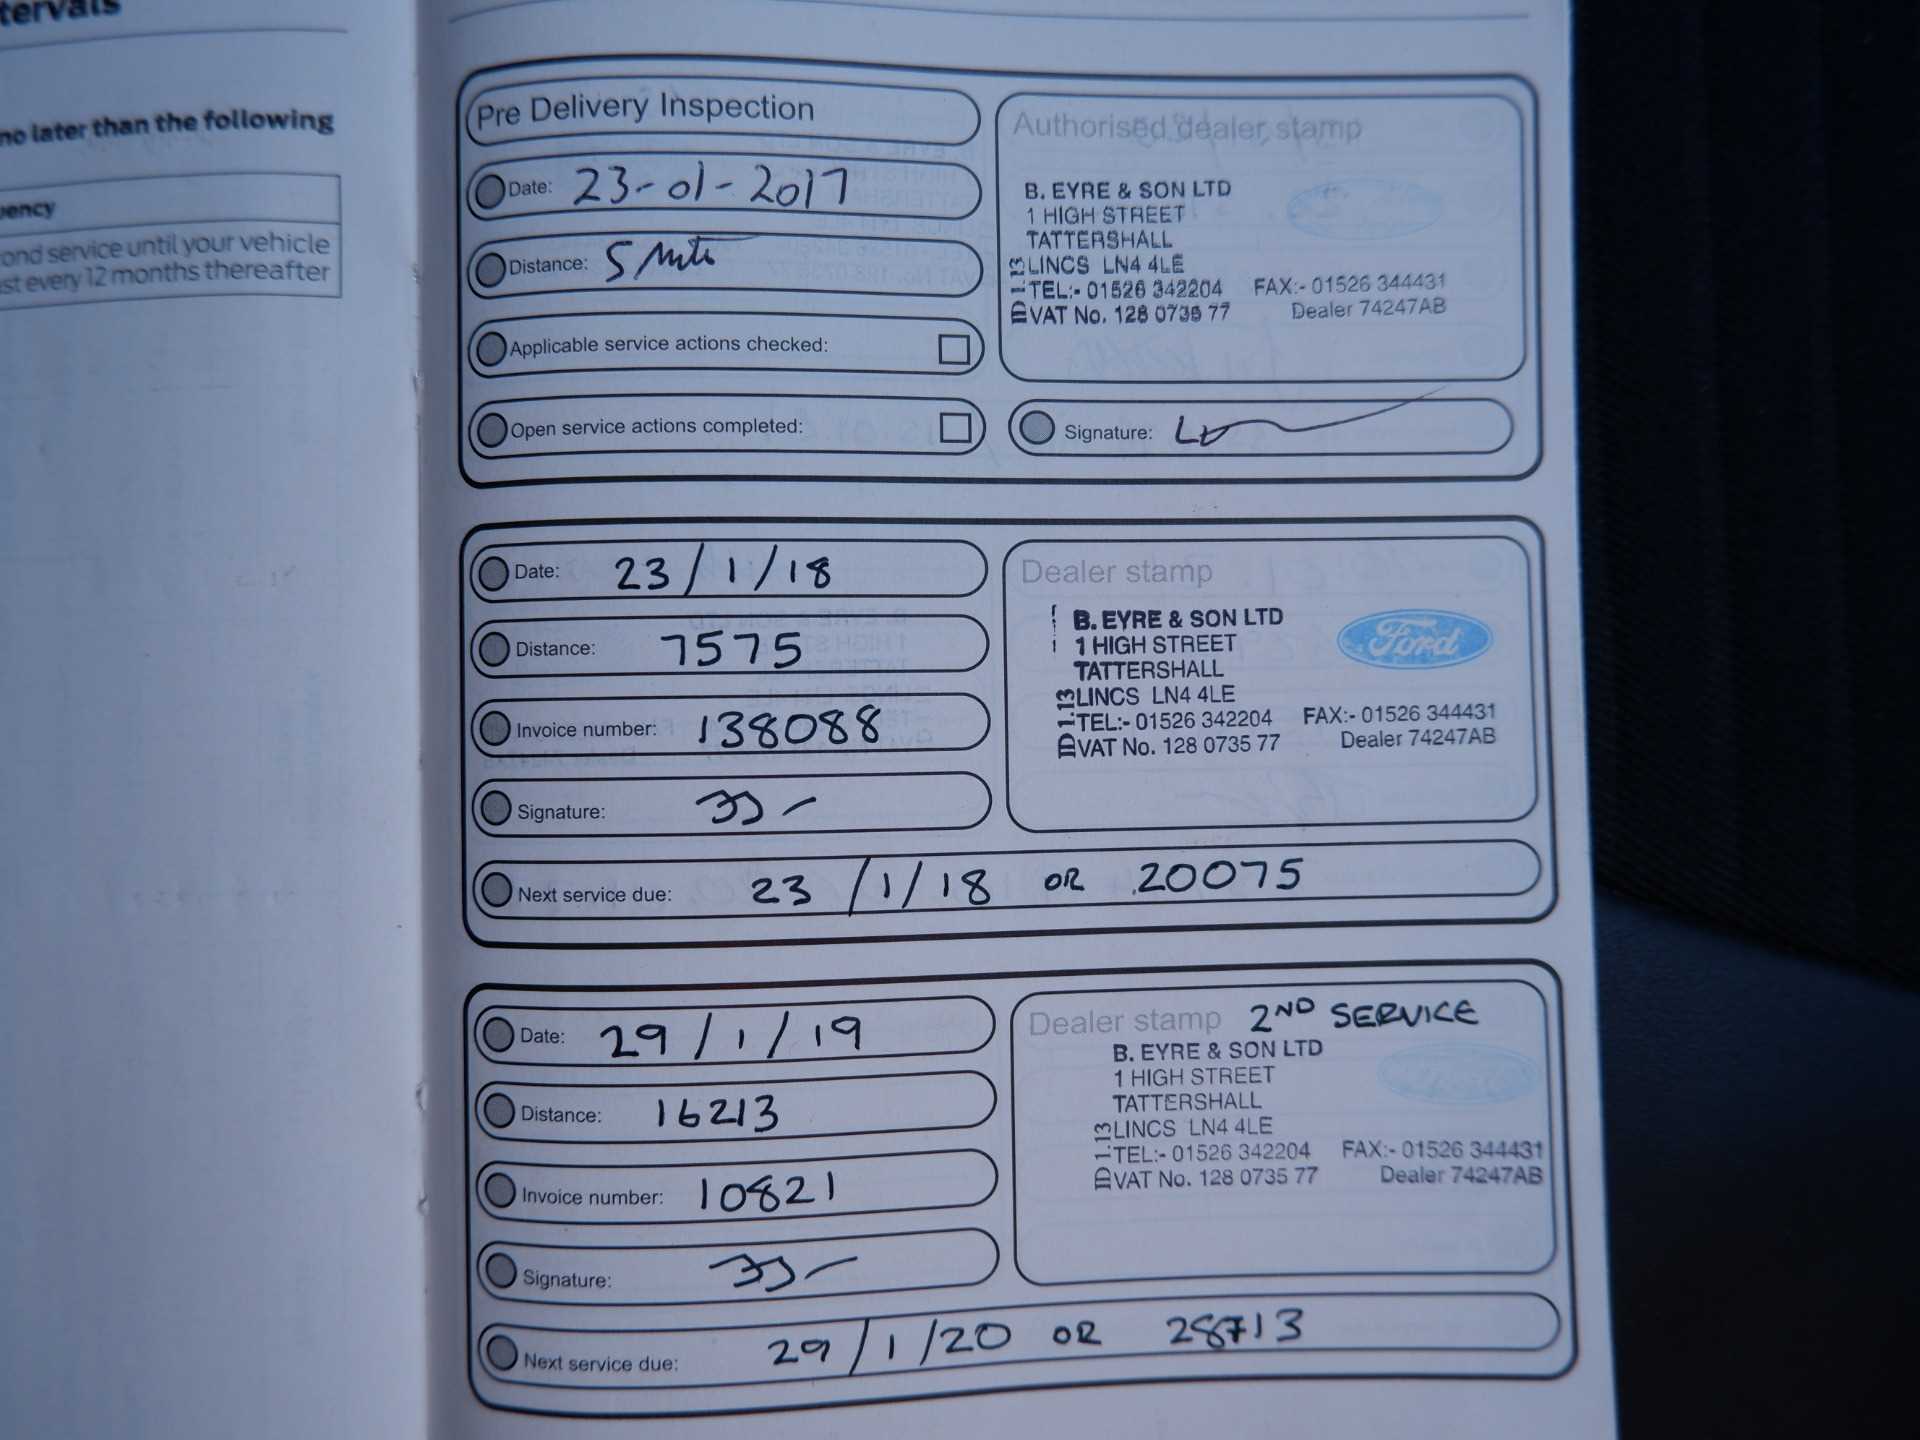 tervals
no later than the following
uency
ond service until your vehicle
st every 12 months thereafter
Pre Delivery Inspection
Date: 23-01-2017
Distance: 5
Applicable service actions checked:
Open service actions completed:
Authorised dealer stamp
B. EYRE & SON LTD
1 HIGH STREET
TATTERSHALL
LINCS LN4 4LE
TEL:- 01526 342204 FAX:- 01526 344431
VAT No. 128 0735 77 Dealer 74247AB
ID 1:13
Signature:
Date: 23/1/18
Distance: 7575
Invoice number: 138088
Signature:
Dealer stamp
B. EYRE & SON LTD
1 HIGH STREET
TATTERSHALL
LINCS LN4 4LE
TEL:- 01526 342204 FAX:- 01526 344431
VAT No. 128 0735 77 Dealer 74247AB
ID 1:13
Ford
Next service due: 23/1/18 OR 20075
Date: 29/1/19
Distance: 16213
Invoice number: 10821
Signature:
Dealer stamp 2ND SERVICE
B. EYRE & SON LTD
1 HIGH STREET
TATTERSHALL
LINCS LN4 4LE
TEL:- 01526 342204 FAX:- 01526 344431
VAT No. 128 0735 77 Dealer 74247AB
ID 1:13
Next service due: 29/1/20 OR 28713